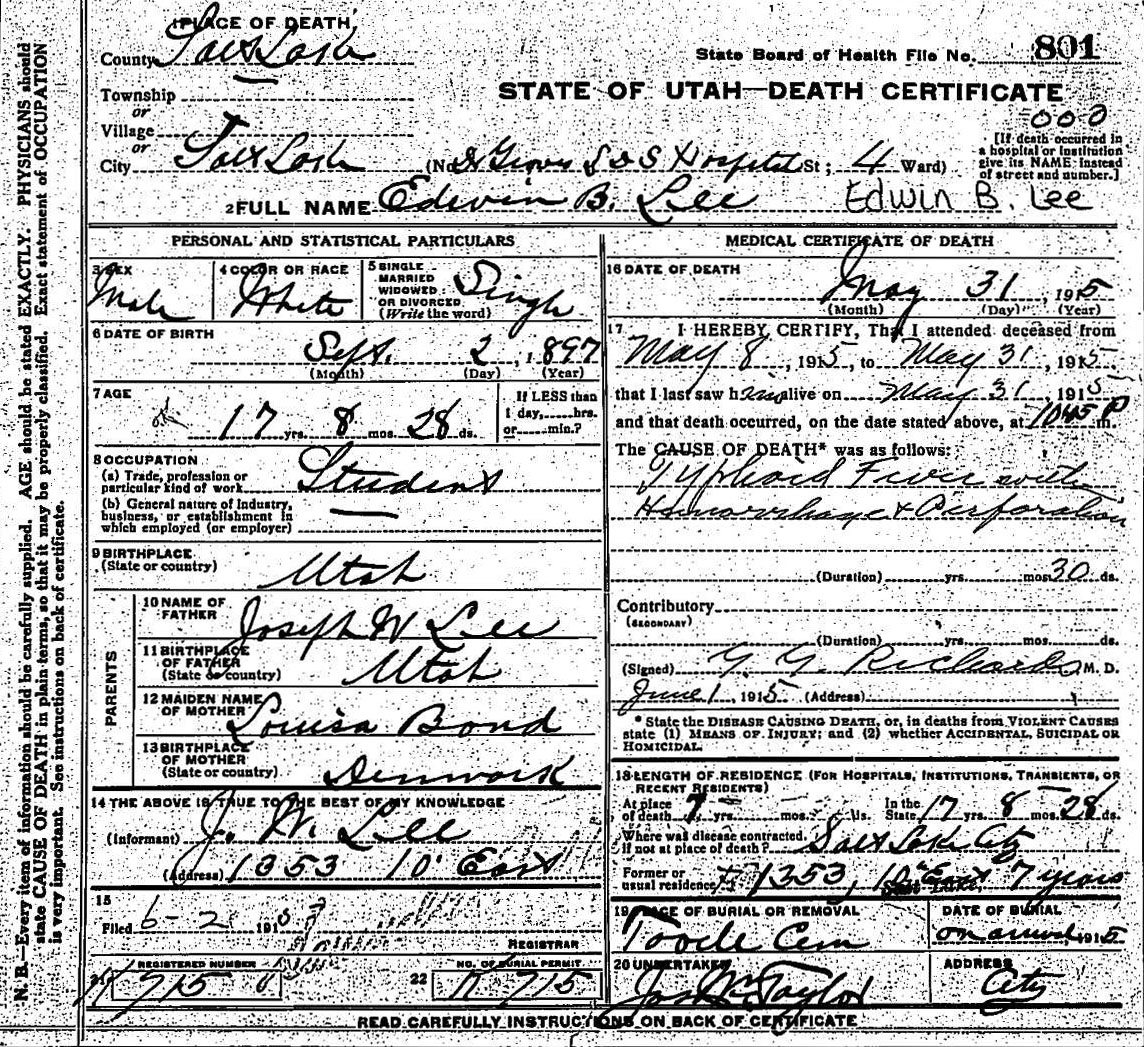 1 PLACE OF DEATH
County Salt Lake
State Board of Health File No. 801
STATE OF UTAH—DEATH CERTIFICATE
Township
or
Village
or
City Salt Lake (No. Dr Groves L D S Hospital St; 4 Ward)
000
[If death occurred in
a hospital or institution
give its NAME instead
of street and number.]
2 FULL NAME Edwin B. Lee Edwin B. Lee
PERSONAL AND STATISTICAL PARTICULARS
3 SEX
Male
4 COLOR OR RACE
White
5 SINGLE
MARRIED
WIDOWED
OR DIVORCED
(Write the word)
Single
6 DATE OF BIRTH
Sept. 2, 1897
(Month) (Day) (Year)
7 AGE
17 yrs. 8 mos. 28 ds.
If LESS than
1 day,.....hrs.
or.....min.?
8 OCCUPATION
(a) Trade, profession or
particular kind of work Student
(b) General nature of industry,
business, or establishment in
which employed (or employer)
9 BIRTHPLACE
(State or country)
Utah
PARENTS
10 NAME OF
FATHER
Joseph W Lee
11 BIRTHPLACE
OF FATHER
(State or country)
Utah
12 MAIDEN NAME
OF MOTHER
Louisa Bond
13 BIRTHPLACE
OF MOTHER
(State or country)
Denmark
14 THE ABOVE IS TRUE TO THE BEST OF MY KNOWLEDGE
(Informant) J. W. Lee
(Address) 1353 10 East
15
Filed 6-2 1915
REGISTRAR
REGISTERED NUMBER
K 715
22 NO. OF BURIAL PERMIT
K 715
MEDICAL CERTIFICATE OF DEATH
16 DATE OF DEATH
May 31, 1915
(Month) (Day) (Year)
17 I HEREBY CERTIFY, That I attended deceased from
May 8, 1915, to May 31, 1915
that I last saw him alive on May 31 1915
and that death occurred, on the date stated above, at 1045 P m.
The CAUSE OF DEATH* was as follows:
Typhoid Fever with
Hemorrhage & Perforation
(Duration) yrs. mos. 30 ds.
Contributory
(SECONDARY)
(Duration) yrs. mos. ds.
(Signed) G. G. Richards M. D.
June 1, 1915 (Address)
* State the DISEASE CAUSING DEATH, or, in deaths from VIOLENT CAUSES
state (1) MEANS OF INJURY; and (2) whether ACCIDENTAL, SUICIDAL OR
HOMICIDAL.
18 LENGTH OF RESIDENCE (FOR HOSPITALS, INSTITUTIONS, TRANSIENTS, OR
RECENT RESIDENTS)
At place
of death 7 yrs. mos. ds.
In the
State 17 yrs. 8 mos. 28 ds.
Where was disease contracted,
if not at place of death? Salt Lake City
Former or
usual residence 1353, 10th East 7 years
19 PLACE OF BURIAL OR REMOVAL
Tooele Cem
DATE OF BURIAL
on arrival, 1915
20 UNDERTAKER
Jos Wm Taylor
ADDRESS
City
READ CAREFULLY INSTRUCTIONS ON BACK OF CERTIFICATE
N. B.—Every item of information should be carefully supplied. AGE should be stated EXACTLY. PHYSICIANS should
state CAUSE OF DEATH in plain terms, so that it may be properly classified. Exact statement of OCCUPATION
is very important. See instructions on back of certificate.